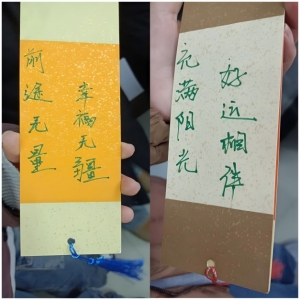 前途无量
幸福无疆
充满阳光
好运相伴